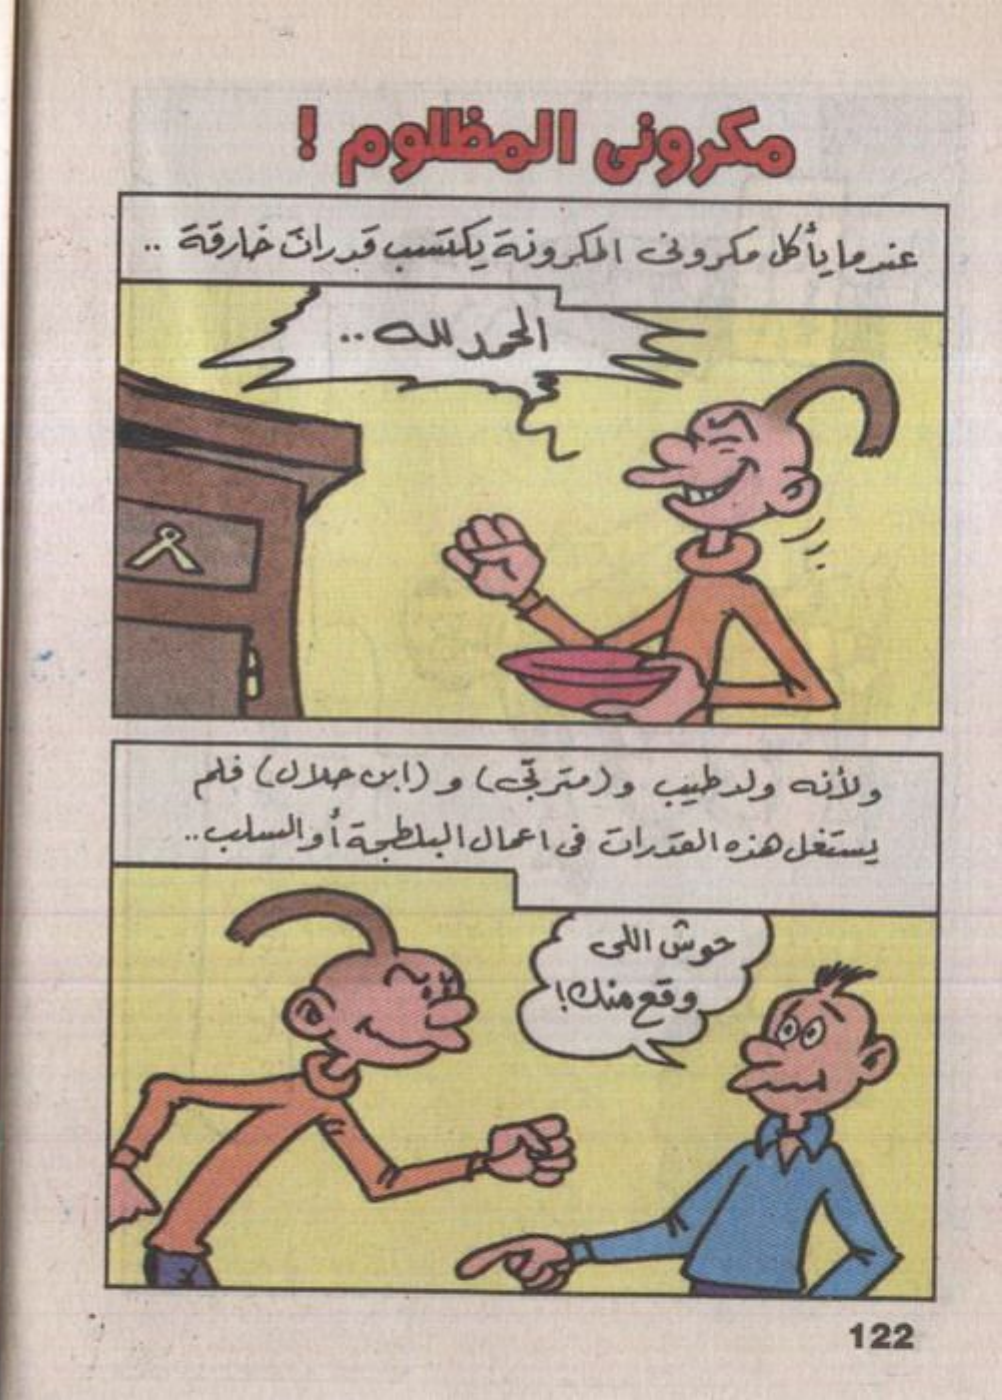 مكرونى المظلوم !
عندما يأكل مكرونى المكرونة يكتسب قدرات خارقة ..
الحمد لله ..
ولأنه ولد طيب و (متربّى) و (ابن حلال) فلم
يستغل هذه القدرات فى اعمال البلطجة أو السلب ..
حوش اللى
وقع منك !
122